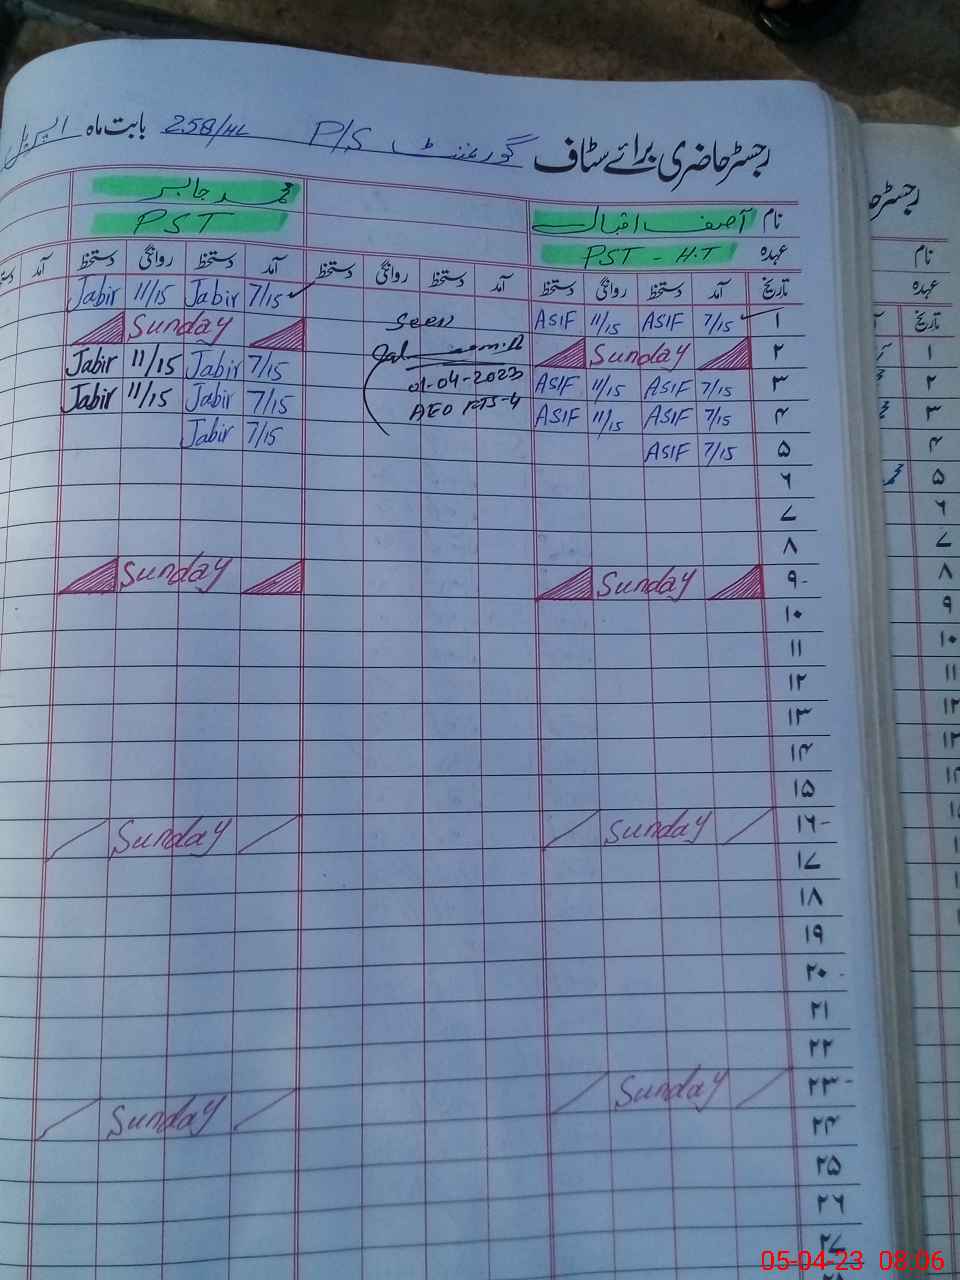 رجسٹر حاضری برائے سٹاف گورنمنٹ P/S 258/4L بابت ماہ اپریل
نام آصف اقبال محمد جابر
عہدہ PST - H.T PST
تاریخ آمد دستخط روانگی دستخط آمد دستخط روانگی دستخط آمد دستخط روانگی دستخط آمد
۱ 7/15 ASIF 11/15 ASIF Seen 7/15 Jabir 11/15 Jabir
۲ Sunday Sunday
۳ 7/15 ASIF 11/15 ASIF 01-04-2023 7/15 Jabir 11/15 Jabir
۴ 7/15 ASIF 11/15 ASIF AEO 7/15 Jabir 11/15 Jabir
۵ 7/15 ASIF 7/15 Jabir
۶
۷
۸
۹- Sunday Sunday
۱۰
۱۱
۱۲
۱۳
۱۴
۱۵
۱۶- Sunday Sunday
۱۷
۱۸
۱۹
۲۰-
۲۱
۲۲
۲۳- Sunday Sunday
۲۴
۲۵
۲۶
۲۷
نام
عہدہ
تاریخ
۱
۲
۳
۴
۵
۶
۷
۸
۹
۱۰
۱۱
05-04-23 08:06